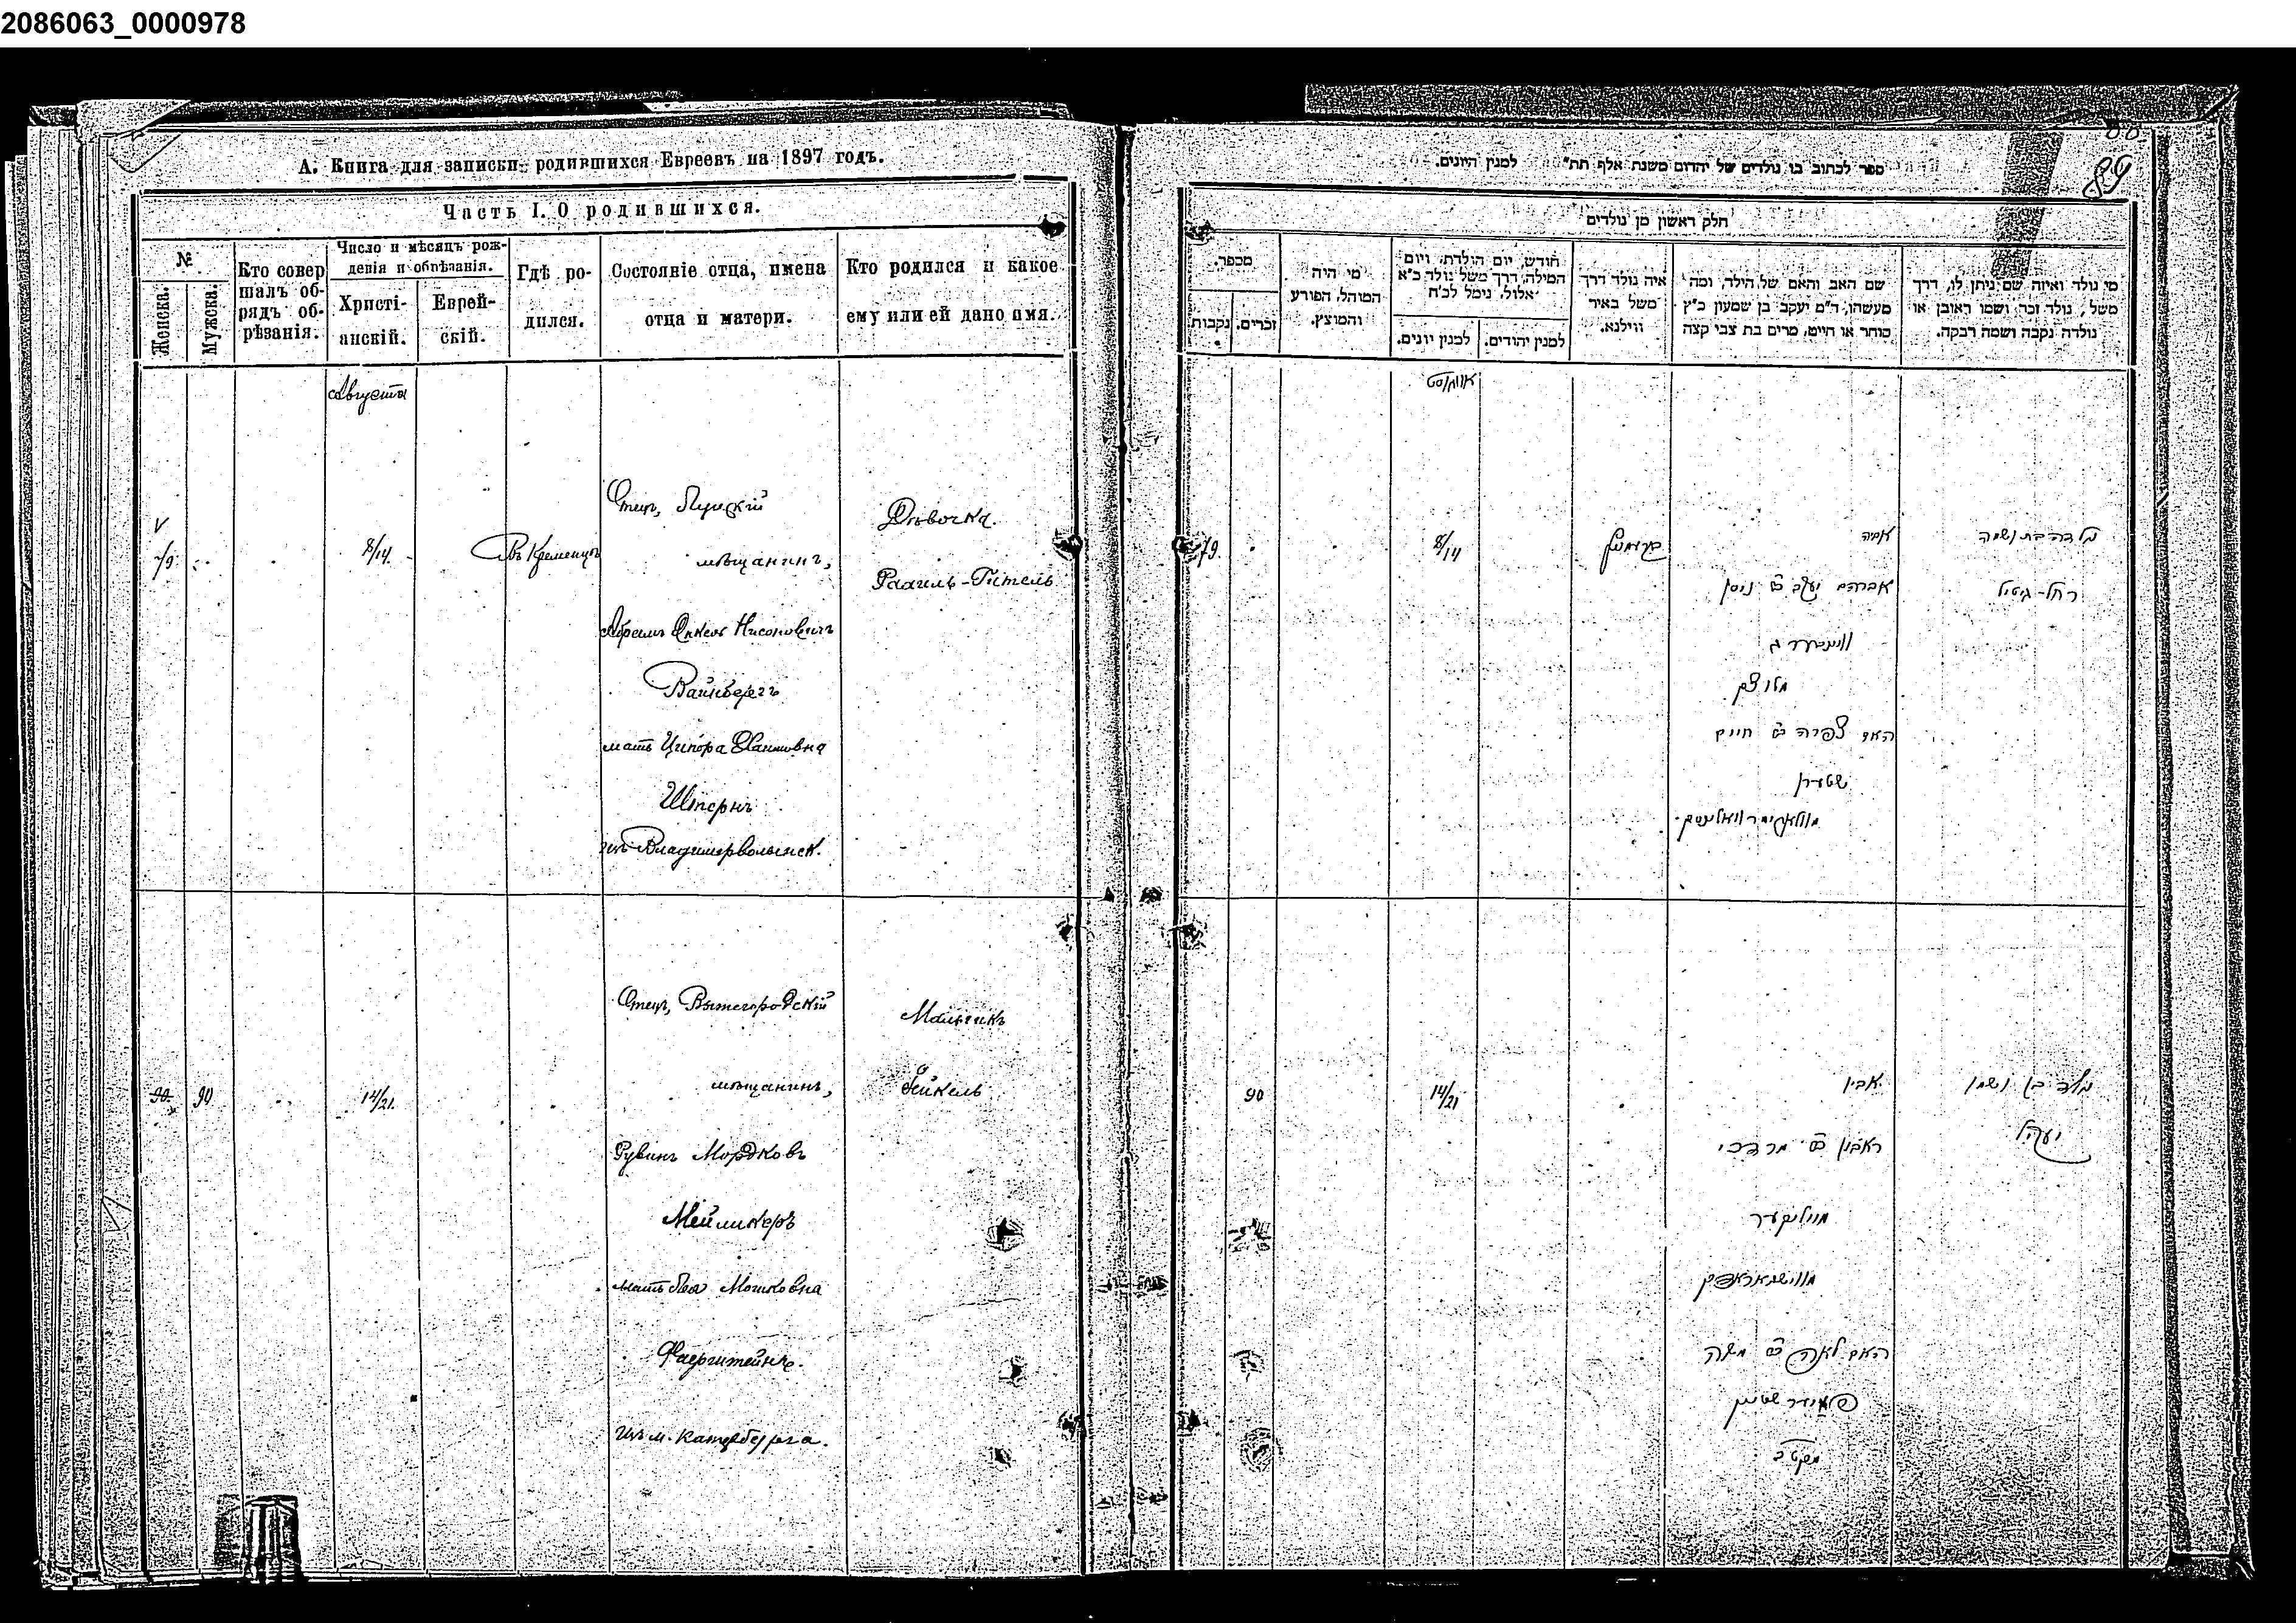 2086063_0000978
А. Книга для записки родившихся Евреевъ на 1897 годъ.
Часть I. О родившихся.
№
Женска.
Мужска.
Кто совер
шалъ об-
рядъ об-
рѣзанія.
Число и мѣсяцъ рож-
денія и обрѣзанія.
Христі-
анскій.
Еврей-
скій.
Гдѣ ро-
дился.
Состояніе отца, имена
отца и матери.
Кто родился и какое
ему или ей дано имя.
Августа
8/14
Въ Кременцѣ
Отецъ, Луцкій
мѣщанинъ,
Абрамъ Янкель Нисоновичъ
Вайнбергъ
мать Ципора Хаимовна
Штернъ
изъ Владимерволынск.
Дѣвочка.
Рахиль-Гитель
90 90
14/21.
Отецъ, Вышегородскій
мѣщанинъ,
Рувинъ Мордковъ
Мейликеръ
мать Лея Мошковна
Фаерштейнъ.
Изъ м. Катербурга.
Мальчикъ
89
ספר לכתוב בו נולדים של יהדום משנת אלף תת" למנין היונים.
חלק ראשון מן נולדים
מספר.
נקבות
זכרים.
מי היה
המוהל, הפורע
והמוצץ.
חודש, יום הולדת, ויום
המילה, דרך משל נולד כ"א
אלול, נימל לכ'ח
למנין יונים.
למנין יהודים.
איה נולד דרך
משל באיר
ווילנא.
שם האב והאם של הילד, ומה
מעשהו, ד"מ יעקב בן שמעון כ"ץ
סוחר או חייט, מרים בת צבי קצה
מי נולד ואיזה שם ניתן לו, דרך
משל, נולד זכר ושמו ראובן או
נולדה נקבה ושמה רבקה.
אווגוסט
8/14
אביה
אברהם יעקב ב"ר ניסן
וויינבערג
מלוצק
האם צפורה ב"ר חיים
שטערן
נולדה בת ושמה
רחל-גיטיל
90
14/21
אביו
ראובן ב"ר מרדכי
האם לאה ב"ר משה
נולד בן ושמו